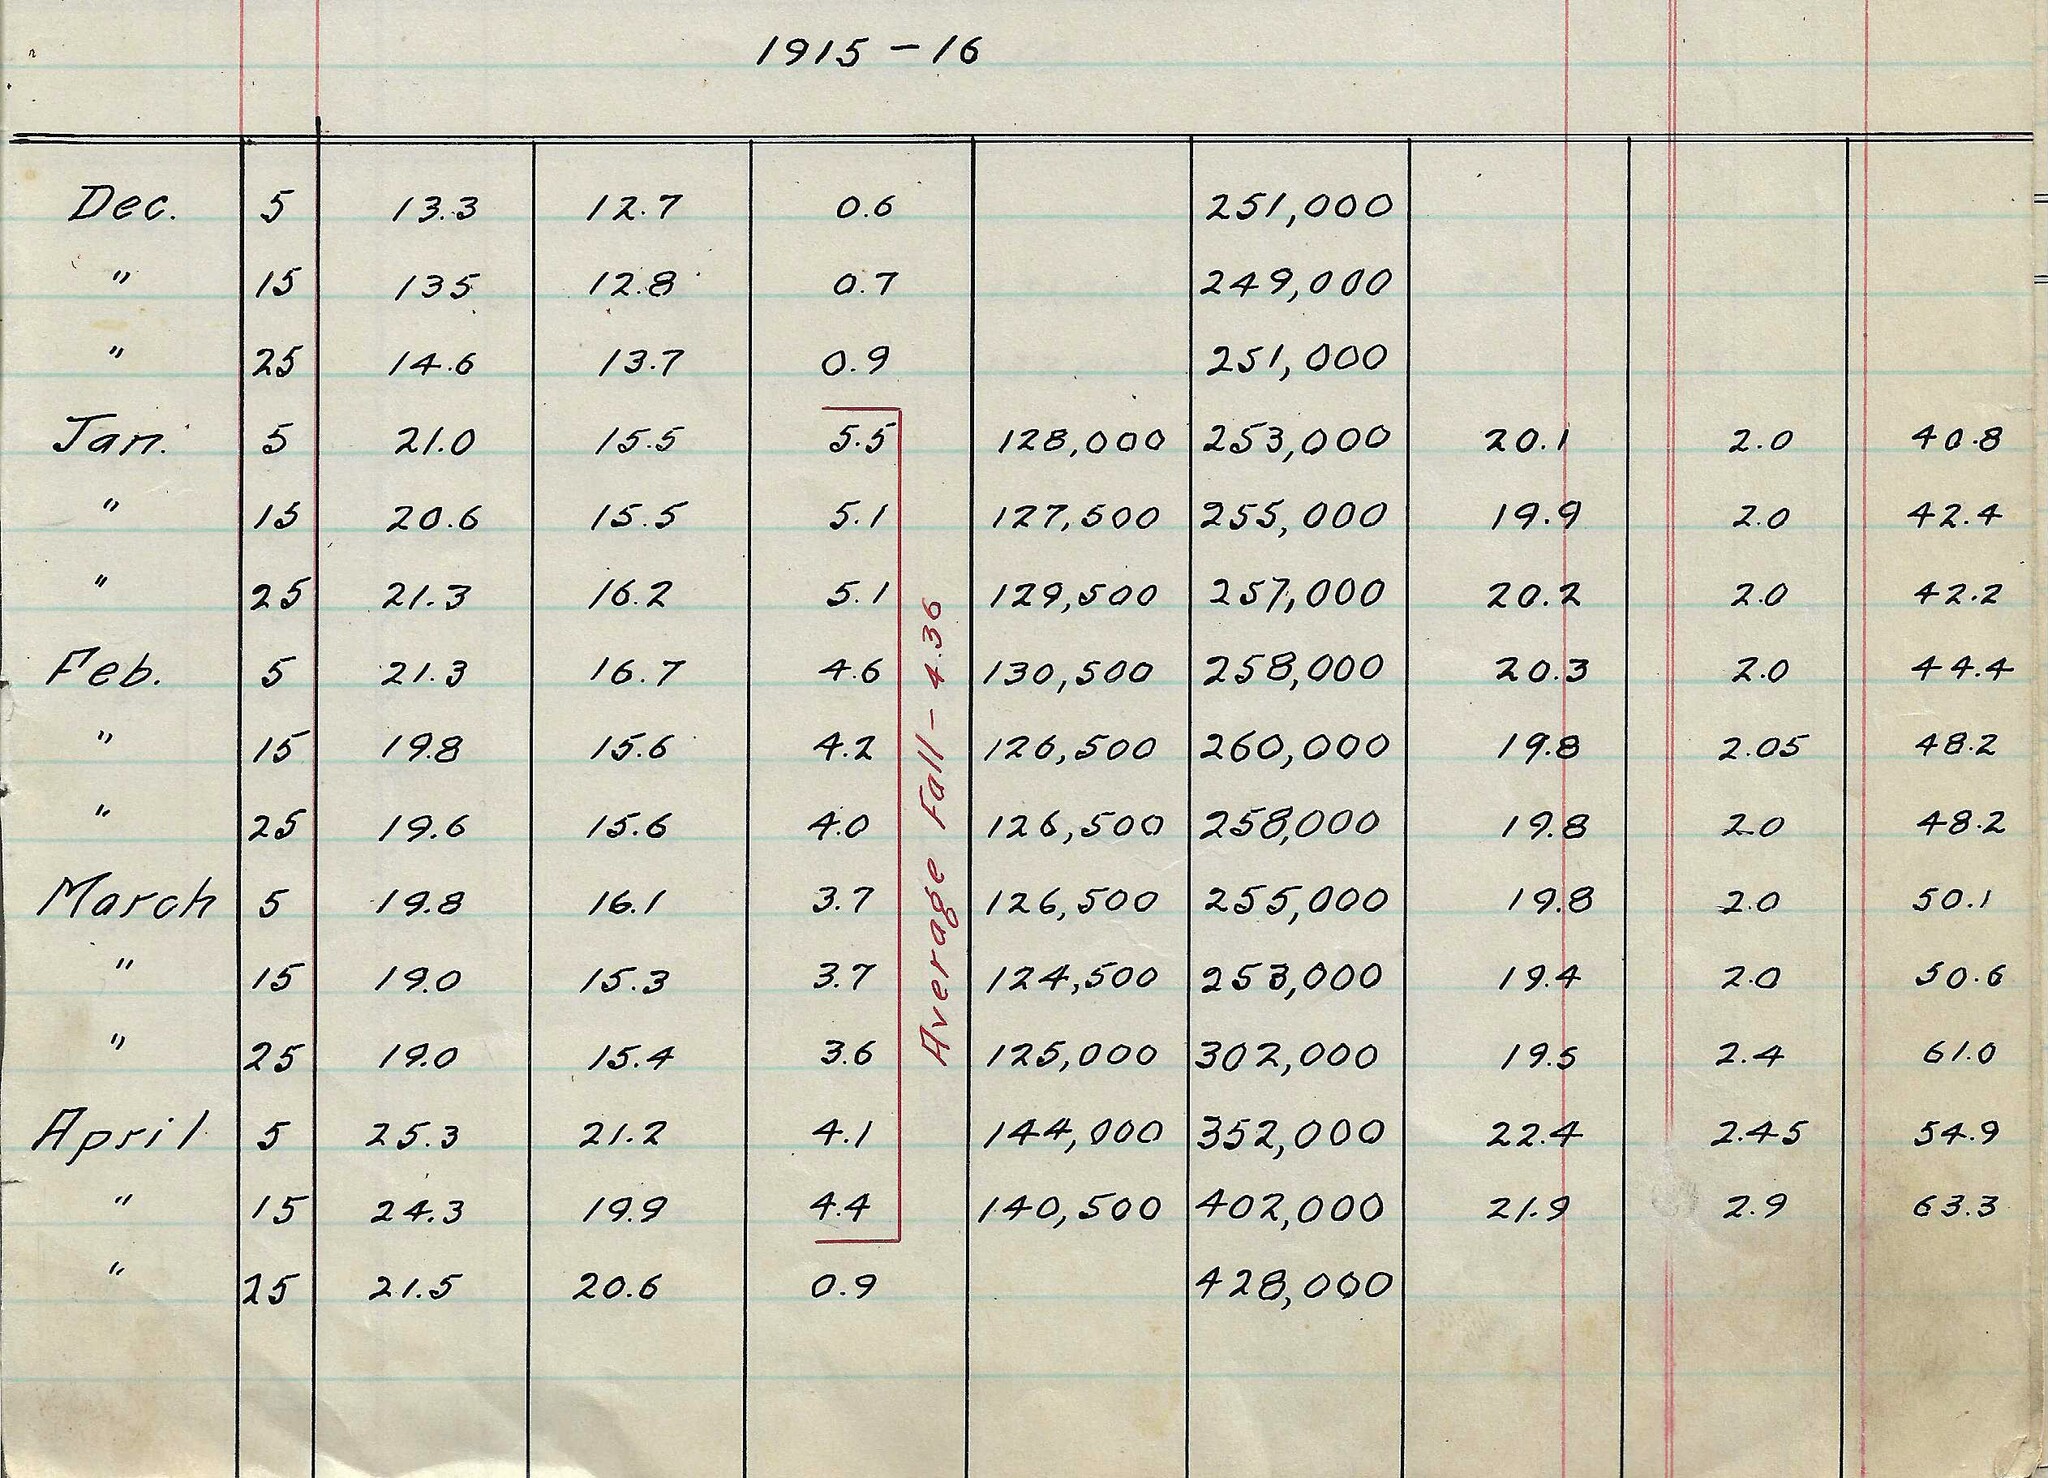 1915-16
Dec. 5 13.3 12.7 0.6 251,000
" 15 135 12.8 0.7 249,000
" 25 14.6 13.7 0.9 251,000
Jan. 5 21.0 15.5 5.5 128,000 253,000 20.1 2.0 40.8
" 15 20.6 15.5 5.1 127,500 255,000 19.9 2.0 42.4
" 25 21.3 16.2 5.1 129,500 257,000 20.2 2.0 42.2
Feb. 5 21.3 16.7 4.6 130,500 258,000 20.3 2.0 44.4
" 15 19.8 15.6 4.2 126,500 260,000 19.8 2.05 48.2
" 25 19.6 15.6 4.0 126,500 258,000 19.8 2.0 48.2
March 5 19.8 16.1 3.7 126,500 255,000 19.8 2.0 50.1
" 15 19.0 15.3 3.7 124,500 253,000 19.4 2.0 50.6
" 25 19.0 15.4 3.6 125,000 302,000 19.5 2.4 61.0
April 5 25.3 21.2 4.1 144,000 352,000 22.4 2.45 54.9
" 15 24.3 19.9 4.4 140,500 402,000 21.9 2.9 63.3
" 25 21.5 20.6 0.9 428,000
Average Fall - 4.36